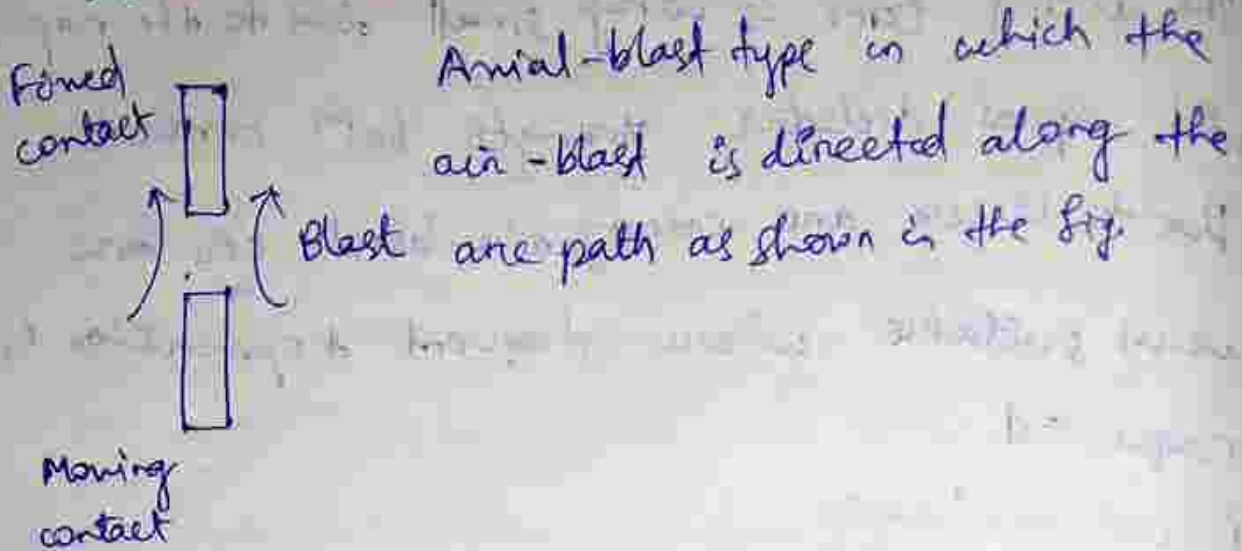 Fixed
contact
Axial-blast type in which the
air-blast is directed along the
Blast arc path as shown in the fig.
Moving
contact